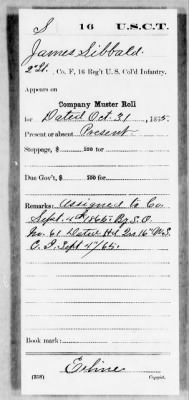 S 16 U.S.C.T.
James Sibbald
2 Lt., Co. F, 16 Reg't U. S. Col'd Infantry.
Appears on
Company Muster Roll
for Dated Oct. 31, 1865.
Present or absent Present
Stoppage, $ 100 for
Due Gov't, $ 100 for
Remarks: Assigned to Co.
Sept. 4th 1865 By S.O.
No. 61 Dated Hd Qrs 16th U.S.
C.I. Sept 4/65.
Book mark:
(358) Copyist.